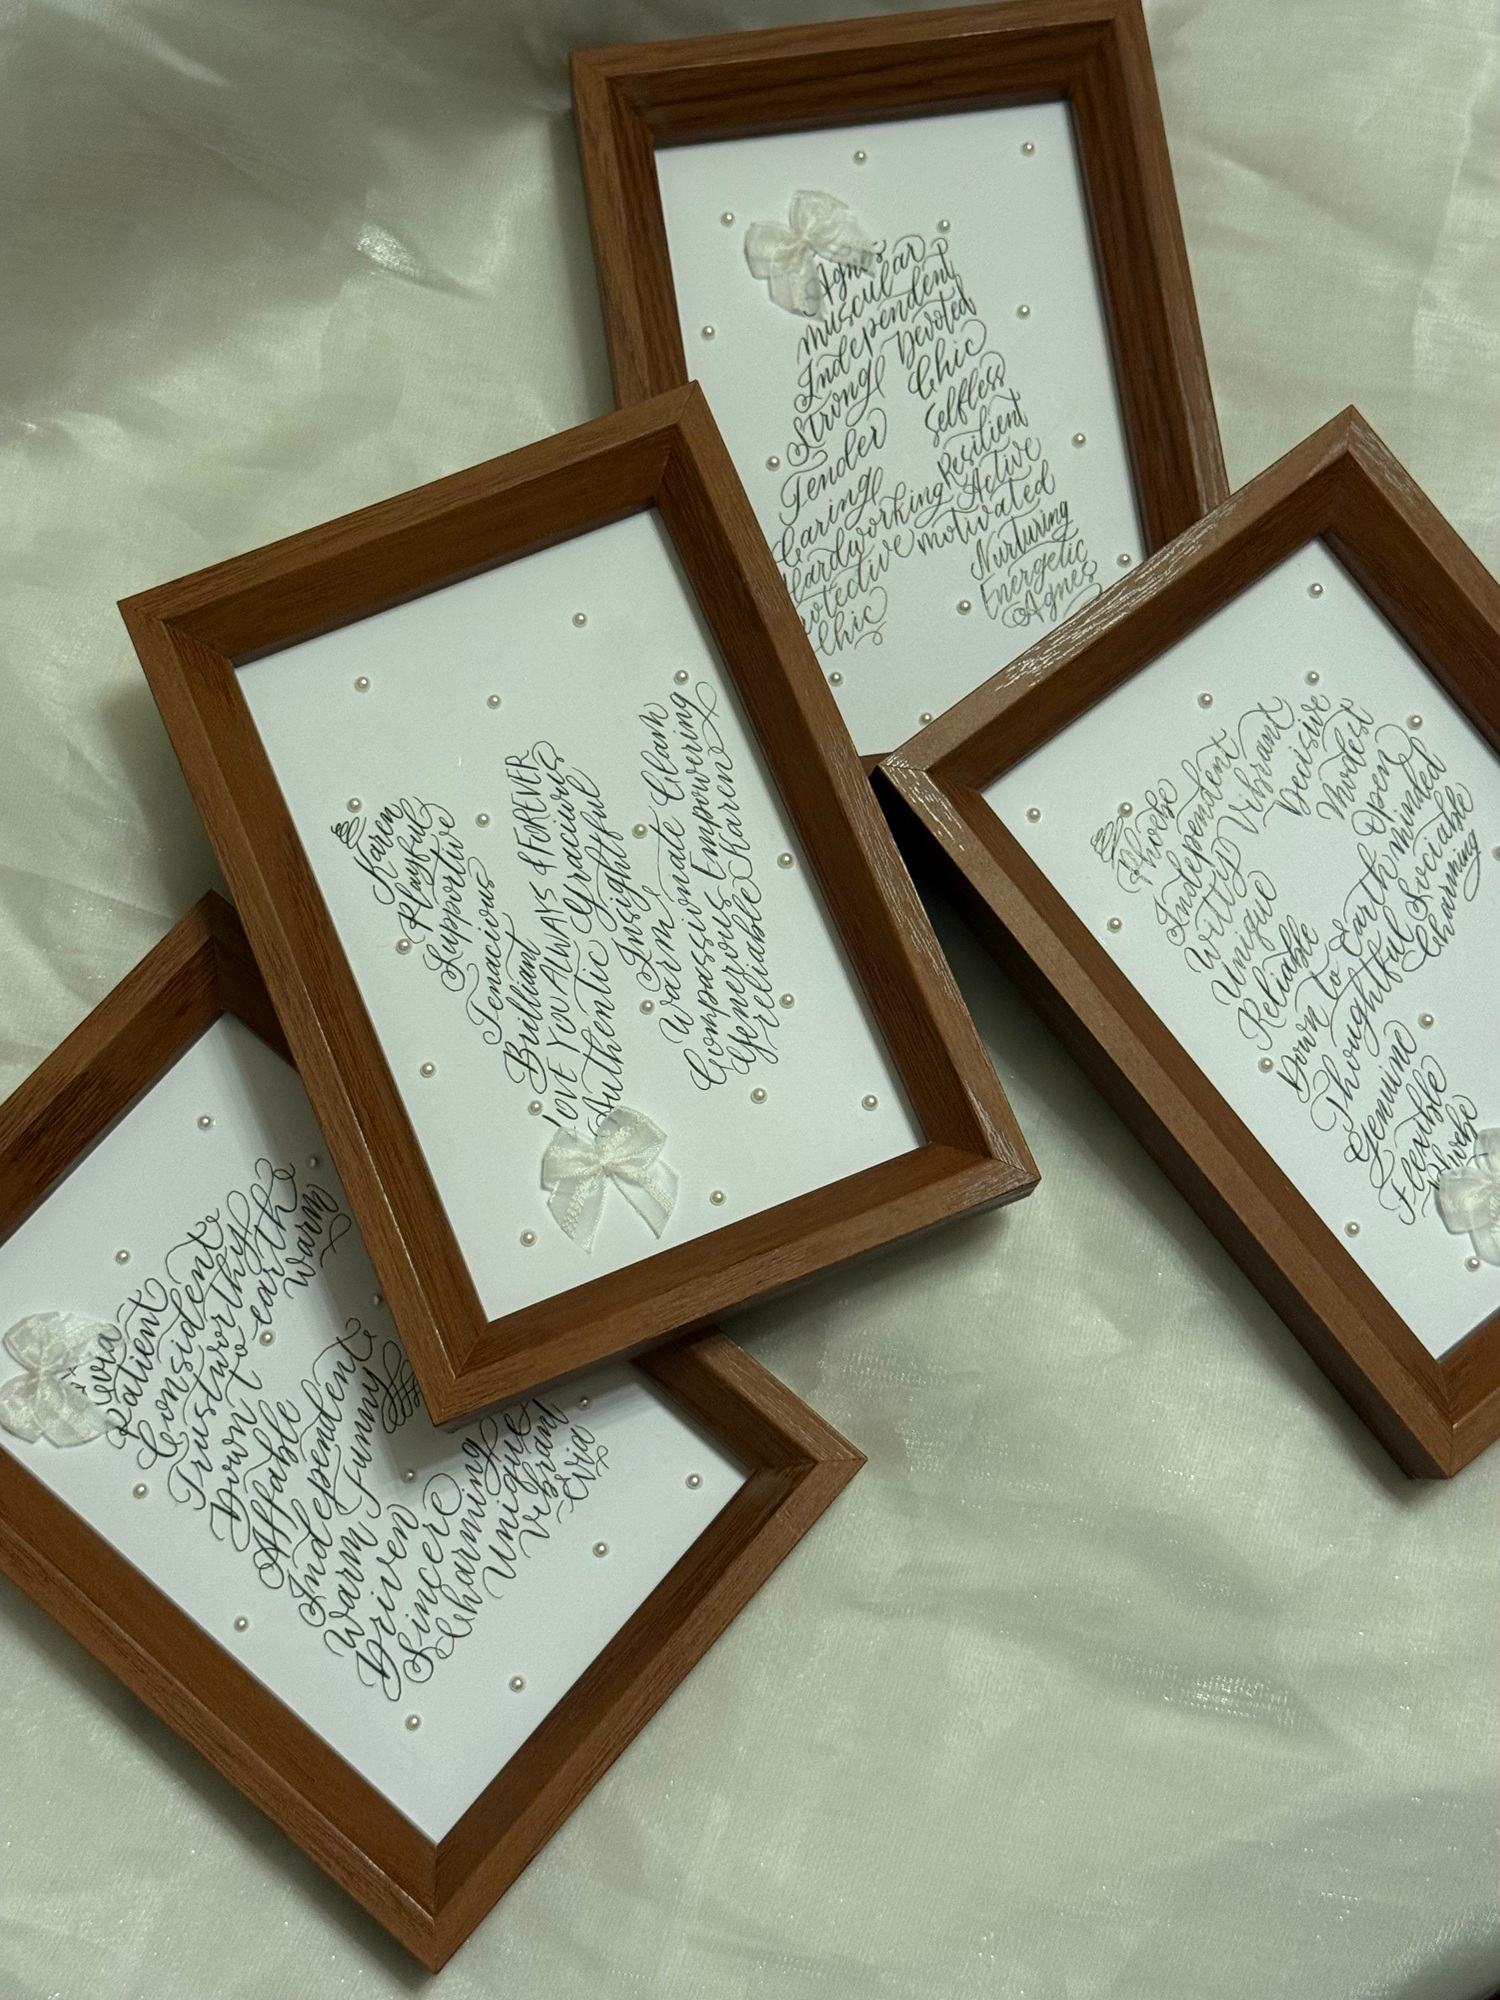 Agnes
muscular
Independent
Strong Devoted
Tender Chic
Caring Selfless
Resilient
Hardworking Active
Protective motivated
Chic Nurturing
Energetic
Agnes
Karen
Playful
Supportive
Tenacious
Brilliant
LOVE YOU ALWAYS & FOREVER
Authentic Gracious
Insightful
Warm
Compassionate Elarh
Generous Empowering
reliable Karen
Phoebe
Independent
Witty Vibrant
Unique Decisive
Reliable Modest
Down to Earth Open
Thoughtful minded
Genuine Sociable
Flexible Charming
Phoebe
Patient
Consident
Trustworthy
Down to earth
Affable Warm
Independent
Warm Funny
Driven
Sincere
Charming
Unique
Vibrant
Evia